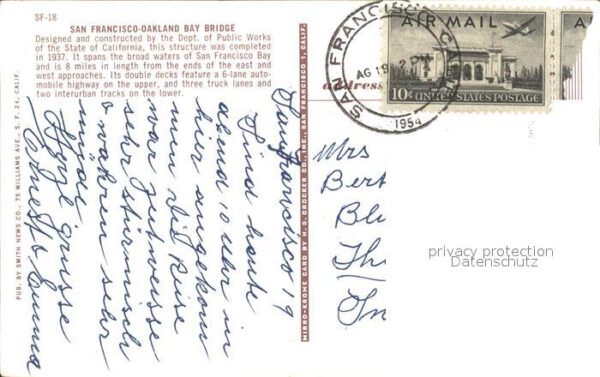 SF-18
SAN FRANCISCO-OAKLAND BAY BRIDGE
Designed and constructed by the Dept. of Public Works
of the State of California, this structure was completed
in 1937. It spans the broad waters of San Francisco Bay
and is 8 miles in length from the ends of the east and
west approaches. Its double decks feature a 6-lane auto-
mobile highway on the upper, and three truck lanes and
two interurban tracks on the lower.
PUB. BY SMITH NEWS CO., 75 WILLIAMS AVE., S. F. 24, CALIF.
MIRRO-KROME CARD BY H. S. CROCKER CO., INC., SAN FRANCISCO 1, CALIF.
SAN FRANCISCO, CALIF.
AG 19
1954
AIR MAIL
10¢ UNITED STATES POSTAGE
A
address
Sanfrancisco 19
Sind heute
abend 10 uhr in
hier angekom
men Die Reise
war zeitweisse
sehr stürmisch
o wahren sehr
müde
Hrzl grüsse
Ernest & Emma
Mrs
Bert
Bl
Th
In
privacy protection
Datenschutz